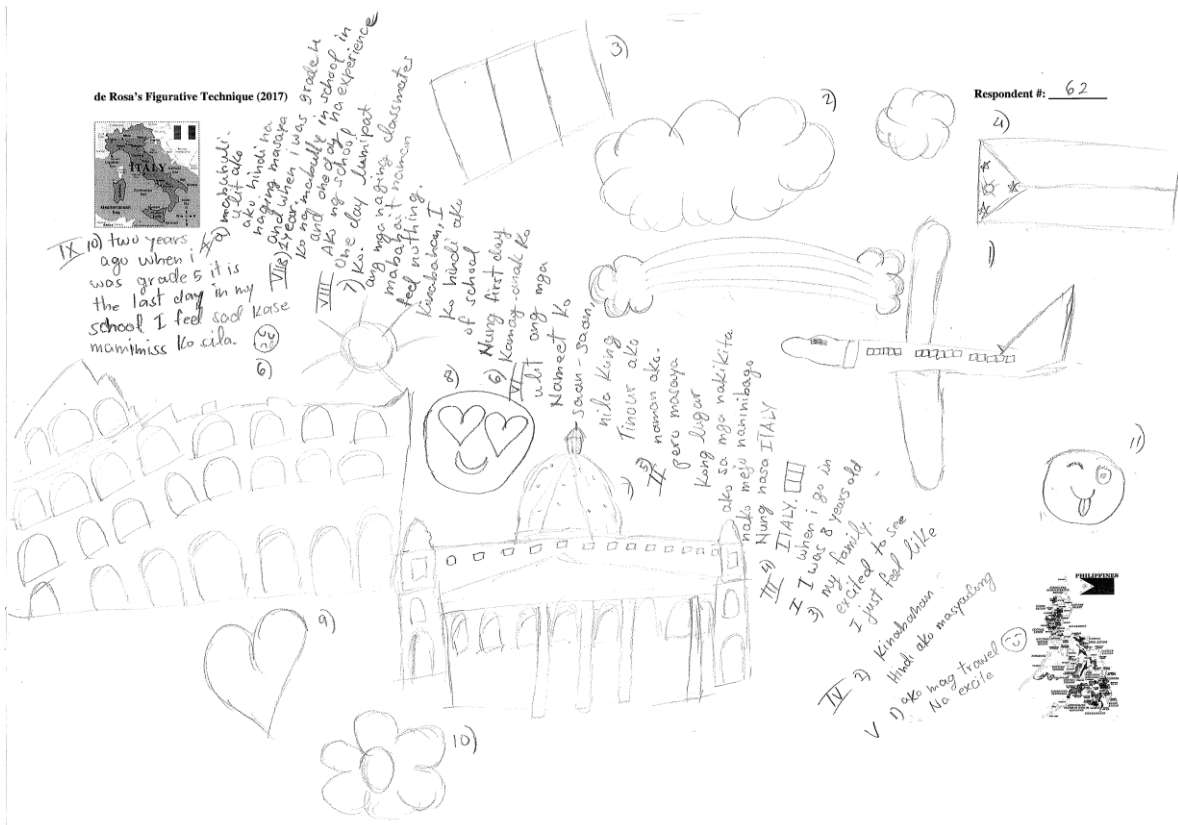 de Rosa's Figurative Technique (2017)
Respondent #: 62
ITALY
IX 10) two years
ago when i
was grade 5 it is
the last day in my
school I feel sad kase
mamimiss ko sila.
X 9) mabubuli-
ulit ako
ako hindi na
naging masaya
and when i was grade 4
VII 8) 1 year
ko na mabully in school in
and one day na experience
VIII Ako ng school
One day lumipat
7) Ko.
ang mga naging classmates
mababait naman
feel nothing.
Kinabahan, I
ko hindi ako
of school
6) Nung first day
VI Kamag-anak ko
ulit ang mga
Nameet ko
saan-saan,
nila kung
Tinour ako
II 5) naman ako.
pero masaya
kong lugar
ako sa mga nakikita
nako meju naninibago
Nung nasa ITALY
III 4) ITALY.
I when i go in
I was 8 years old
3) my family.
excited to see
I just feel like
IV 2) Kinabahan
Hindi ako masyadong
V 1) ako mag travel
Na excite
1)
2)
3)
4)
6)
7)
8)
9)
10)
11)
PHILIPPINES